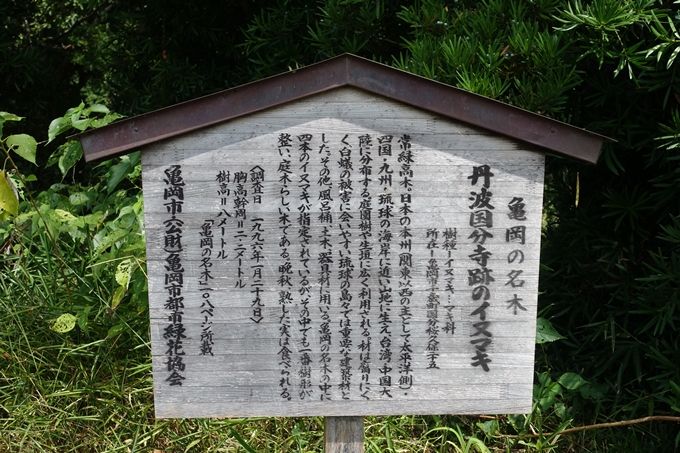 亀岡の名木
丹波国分寺跡のイヌマキ
樹種＝イヌマキ…マキ科
所在＝亀岡市千歳町国分桜久保二十五
常緑高木。日本の本州（関東以西の主として太平洋側）・
四国・九州・琉球の海岸に近い山地に生え台湾、中国大
陸に分布する。庭園樹や生垣に広く利用される。材は腐りにく
く、白蟻の被害に会いやすい琉球の島々では重要な建築材と
した。その他、風呂桶、土木、器具材に用いる。亀岡の名木の中に
四本のイヌマキが指定されているが、その中でも一番樹形が
整い、庭木らしい木である。晩秋、熟した実は食べられる。
〈調査日 一九九六年一月二十九日〉
胸高幹周＝二・二メートル
樹高＝八メートル
「亀岡の名木」一〇八ページ所載
亀岡市 公財 亀岡市都市緑花協会